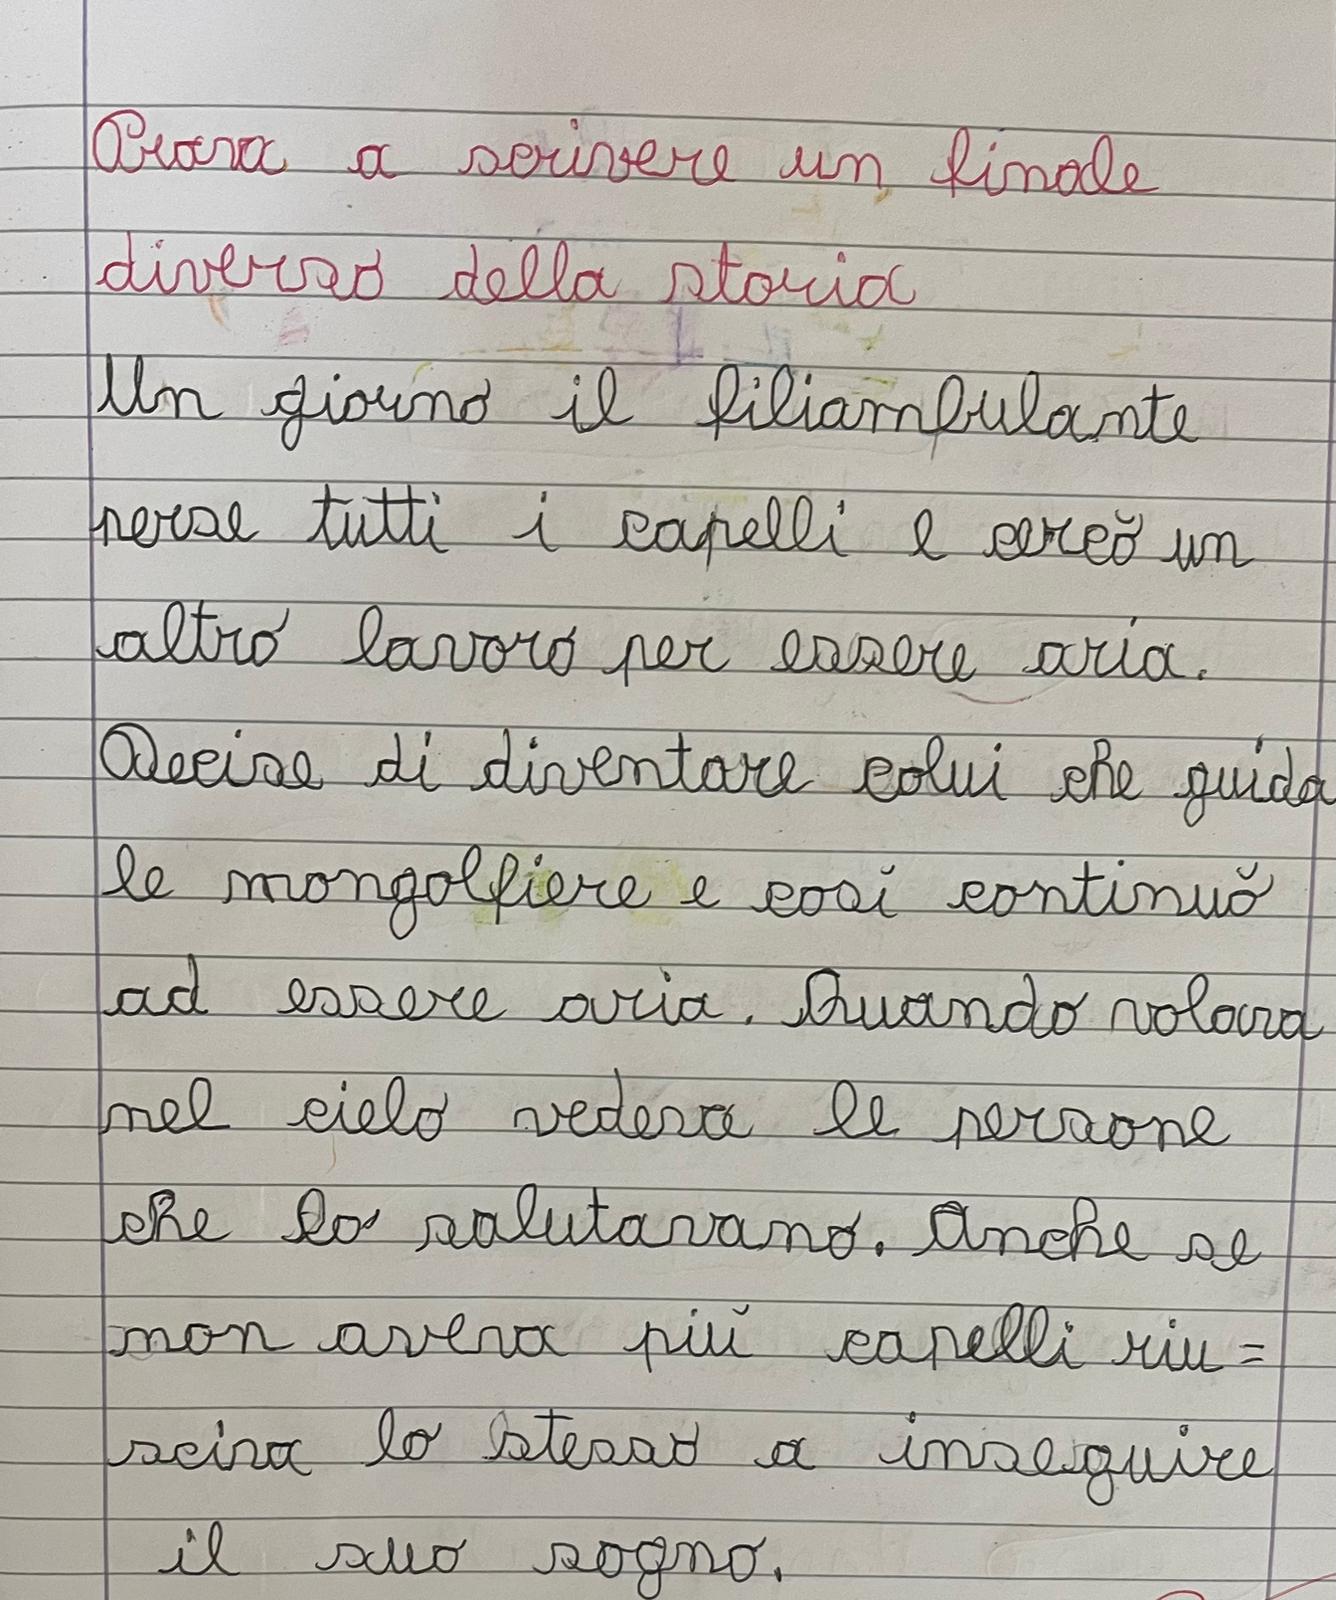 Prova a scrivere un finale
diverso della storia
Un giorno il filiambulante
perse tutti i capelli e cercò un
altro lavoro per essere aria.
Decise di diventare colui che guida
le mongolfiere e così continuò
ad essere aria. Quando volava
nel cielo vedeva le persone
che lo salutavano. Anche se
non aveva più capelli riu=
sciva lo stesso a inseguire
il suo sogno.